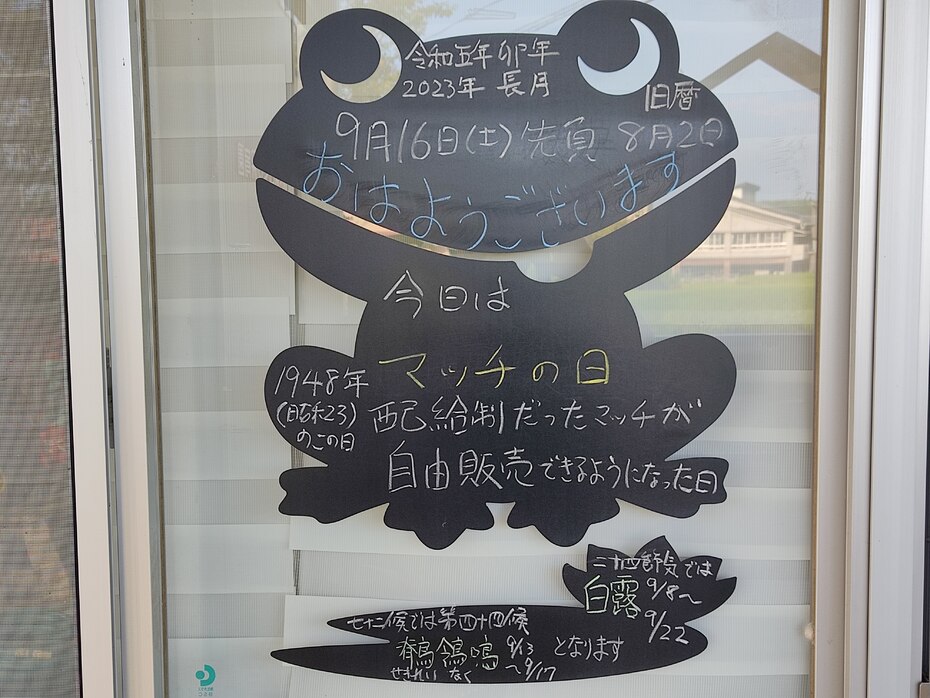 令和五年 卯年
2023年 長月
旧暦
9月16日(土) 先負 8月2日
おはようございます
今日は
マッチの日
1948年
(昭和23)
のこの日
配給制だったマッチが
自由販売できるようになった日
二十四節気では
白露 9/8〜
9/22
七十二候では第四十四候
鶺鴒鳴 9/13
〜9/17
となります
せきれい なく